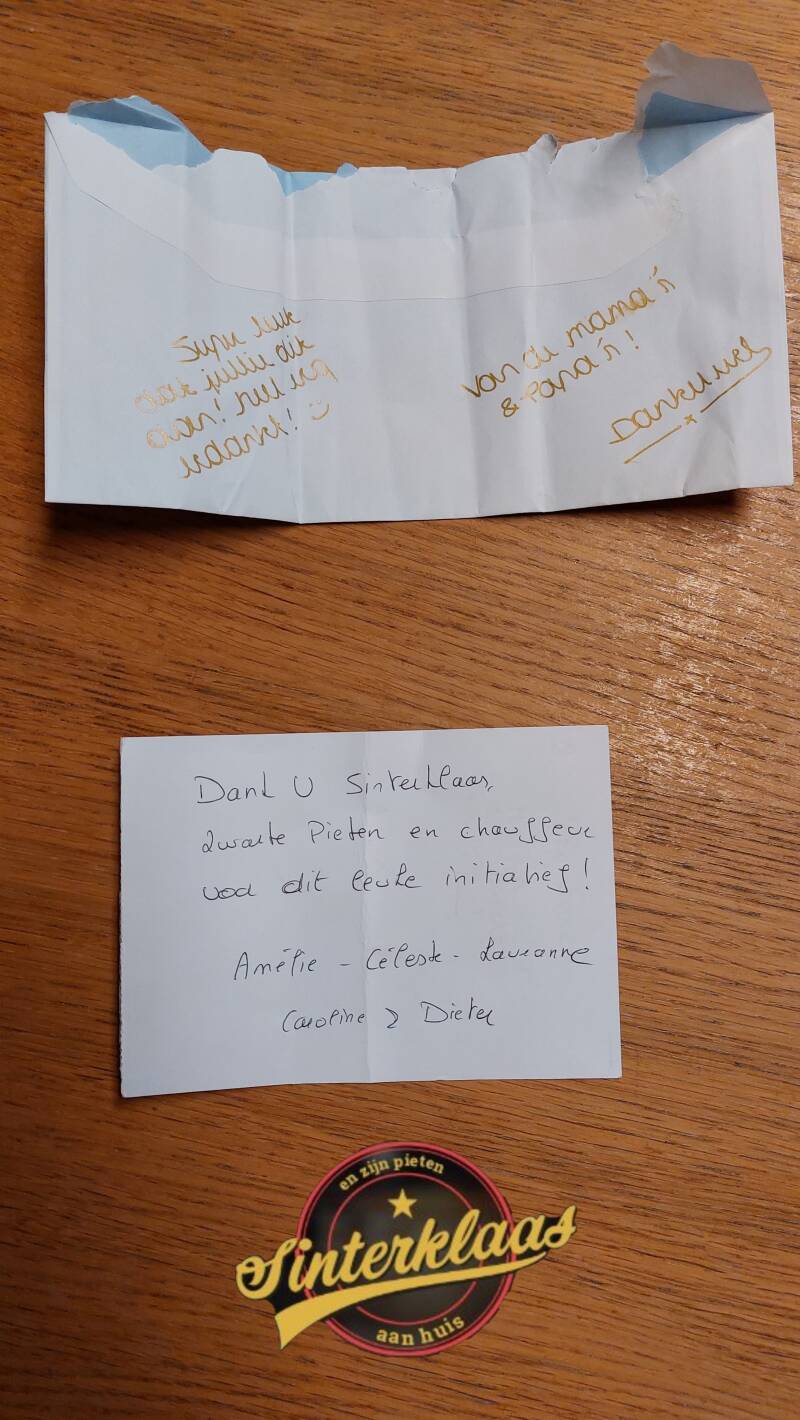 Super leuk
dat jullie dit
doen! heel erg
bedankt!
van de mama's
& Papa's!
Dankuwel
Dank U Sinterklaas,
Zwarte Pieten en chauffeur
voor dit leuke initiatief!
Amélie - Céleste - Lauranne
Caroline & Dieter
en zijn pieten
Sinterklaas
aan huis